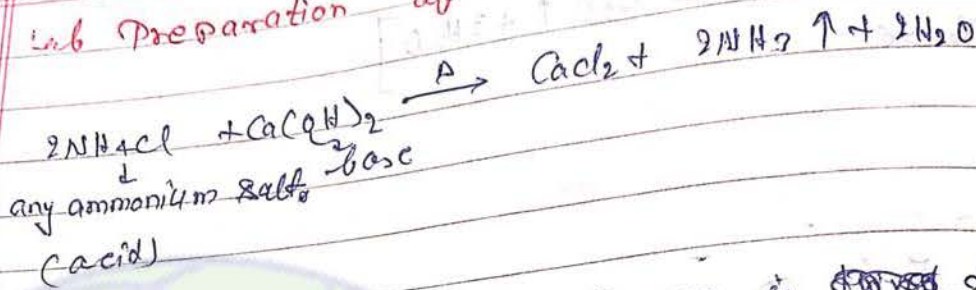 Lab Preparation of
2NH4Cl + Ca(OH)2 Δ→ CaCl2 + 2NH3 ↑ + 2H2O
↓
any ammonium salt. base
(acid)